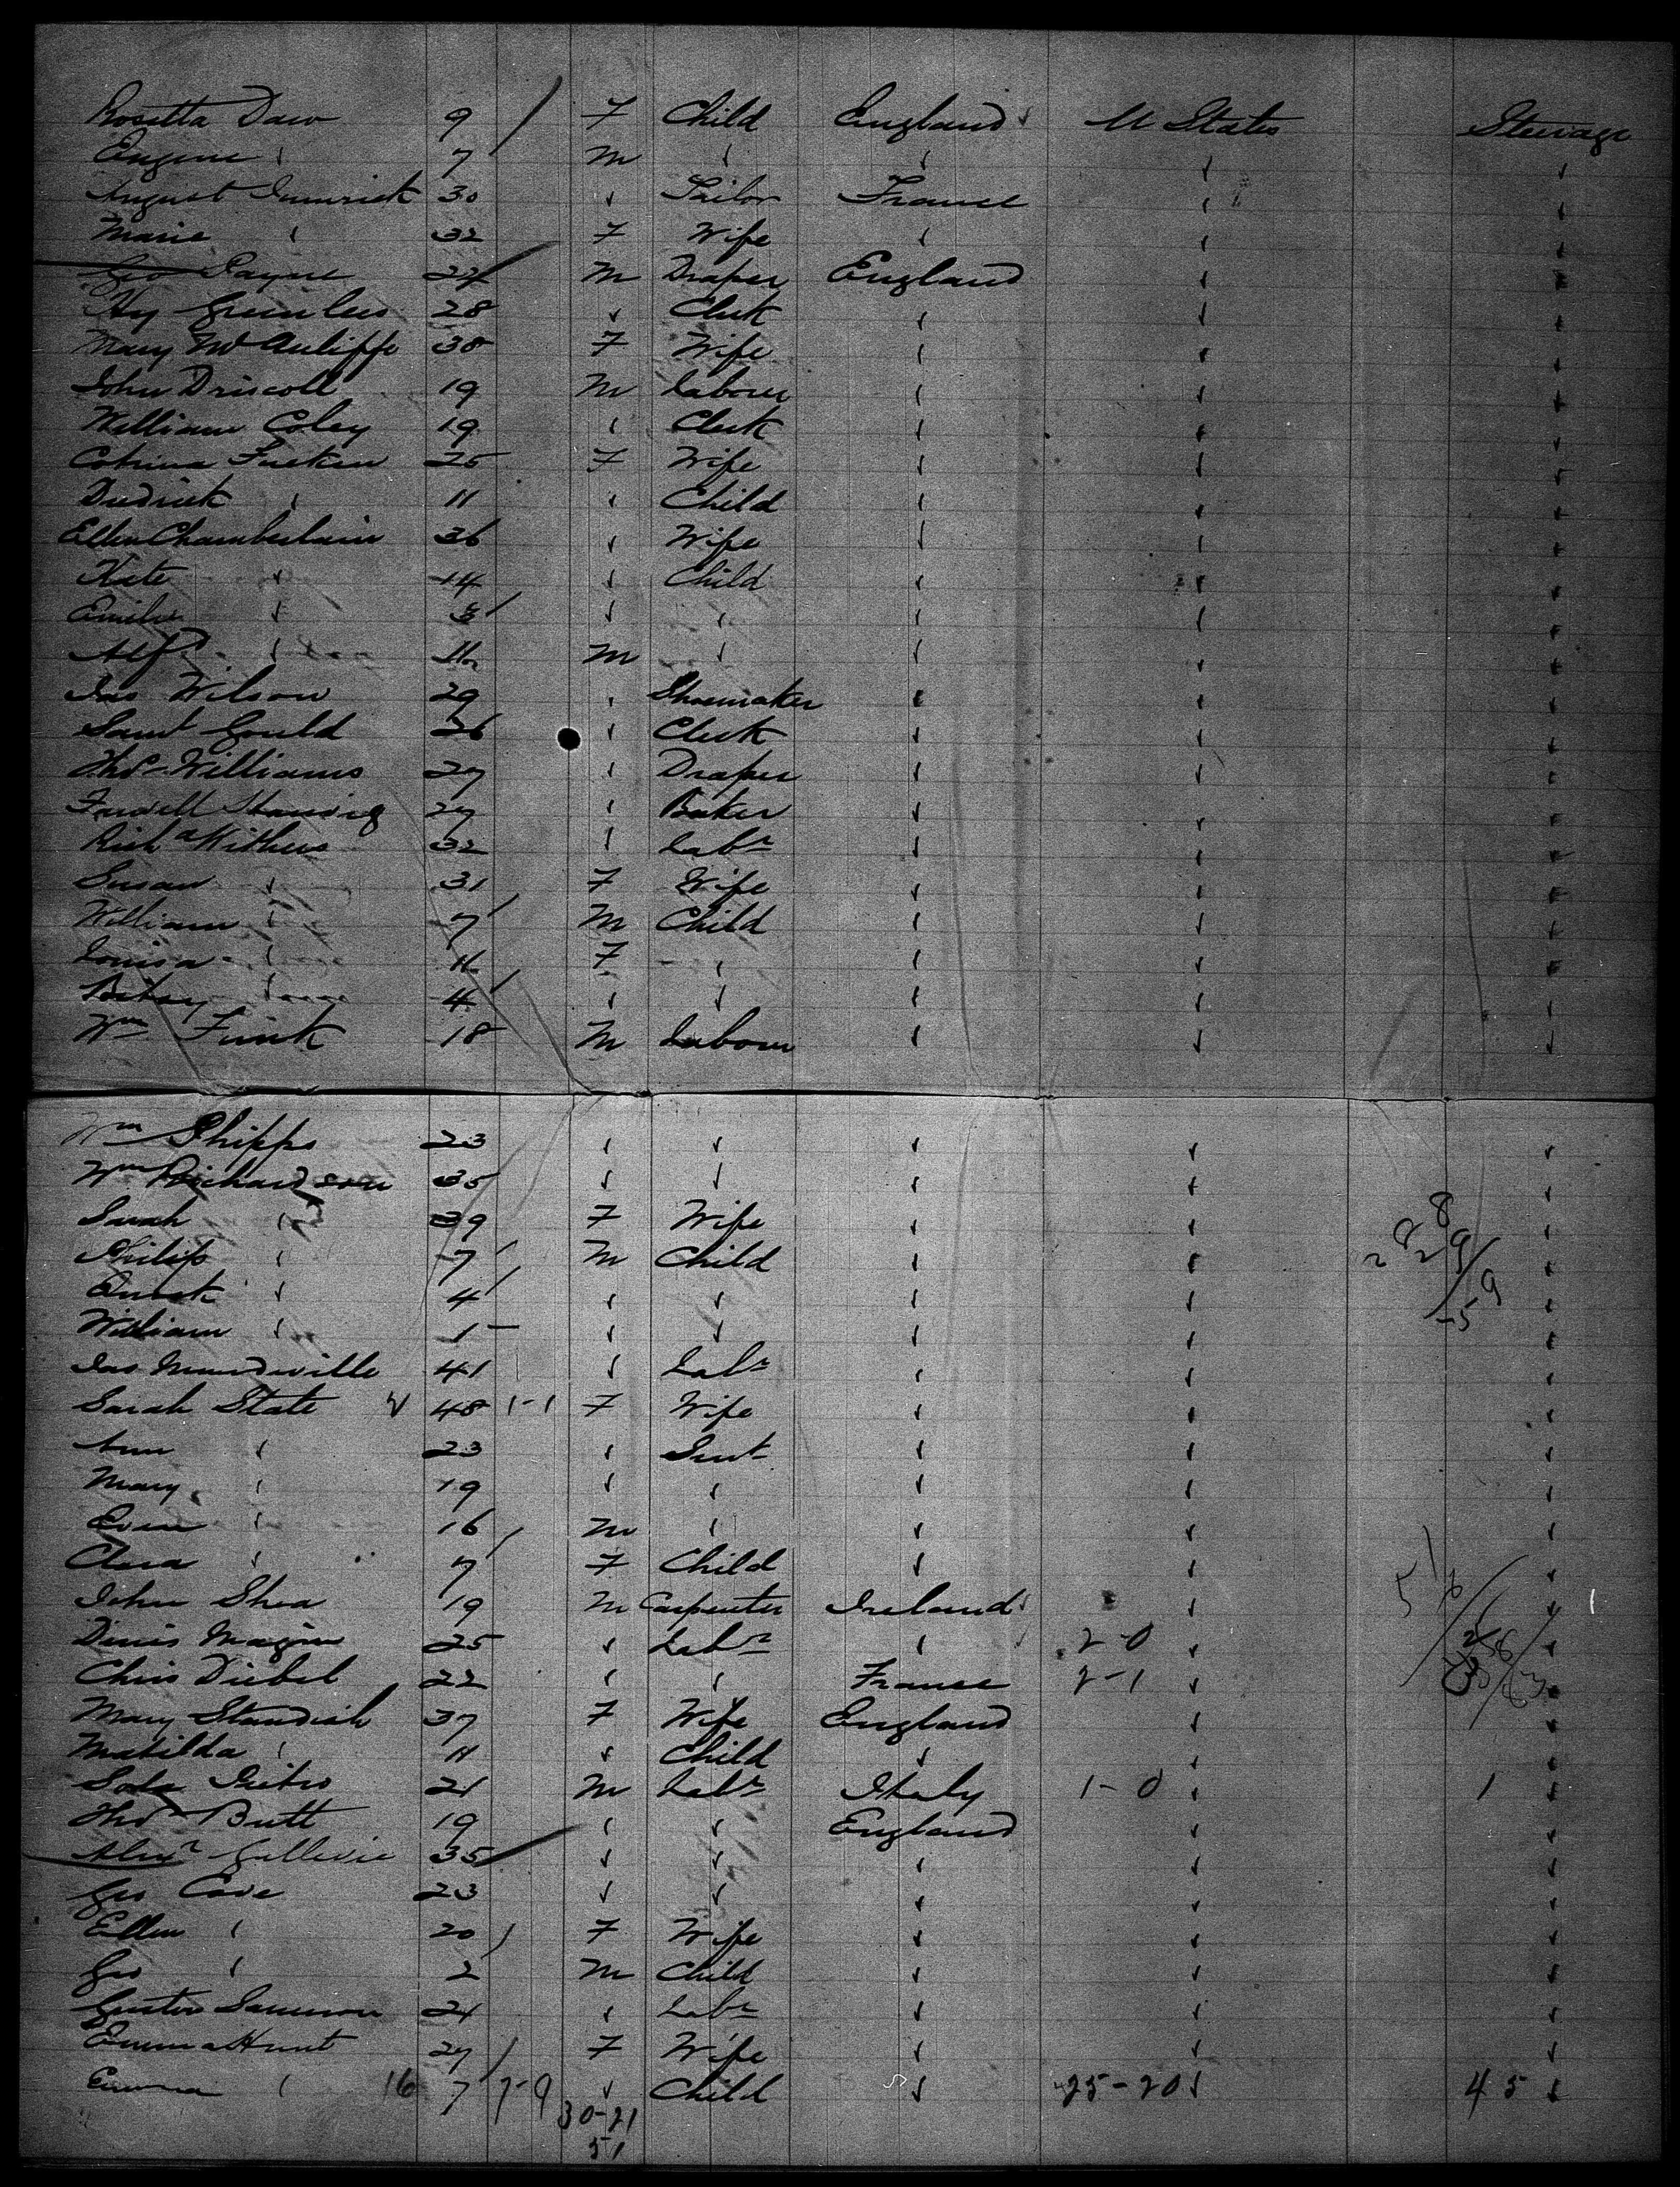 Rosetta Daw 9 / F Child England U States Steerage
Eugene " 7 M " " " "
August 30 " Tailor France " "
Marie " 32 F Wife " " "
Geo Payne 24 M Draper England " "
Hy Greenlees 28 " Clerk " " "
Mary McAuliffe 38 F Wife " " "
John Driscoll 19 M Labour " " "
William Coley 19 " Clerk " " "
Catrina 25 F Wife " " "
Diedrick " 11 " Child " " "
Ellen Chamberlain 36 " Wife " " "
Kate " 14 " Child " " "
Emilie " 3 " " " " "
Alfd " 11 M " " " "
Jas Wilson 29 " Shoemaker " " "
Saml Gould 26 " Clerk " " "
Thos Williams 27 " Draper " " "
27 " Baker " " "
Richd Withers 32 " Labr " " "
Susan " 31 F Wife " " "
William " 7 M Child " " "
Louisa " 11 F " " " "
Betsy " 4 " " " " "
Wm Funk 18 M Labour " " "
Wm Phipps 23 " " " " "
Wm Richardson 35 " " " " "
Sarah " 39 F Wife " " "
Philip " 7 M Child " " "
" 4 " " " " "
William " 1 " " " " "
Jas Mandeville 41 " Labr " " "
Sarah State 48 1-1 F Wife " " "
Ann " 23 " Servt " " "
Mary " 19 " " " " "
16 M " " " "
Clara " 7 F Child " " "
John Shea 19 M Carpenter Ireland " "
Denis Magin 25 " Labr " 2-0 " "
Chris Diebel 22 " " France 2-1 " "
Mary Standish 37 F Wife England " "
Matilda " 11 " Child " " "
Pietro 21 M Labr Italy 1-0 " 1 "
Thos Butt 19 " " England " "
Alexr 35 " " " " "
Geo Cave 23 " " " " "
Ellen " 20 F Wife " " "
Geo " 2 M Child " " "
Gustav 21 " Labr " " "
Emma Hunt 27 F Wife " " "
Emma " 16 7 7-9 " Child " 25-20 " 45 "
30-21
51